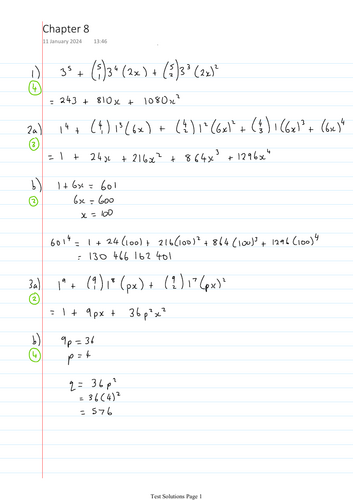 Chapter 8
11 January 2024 13:46
1) 3⁵ + (5 1) 3⁴ (2x) + (5 2) 3³ (2x)²
④ = 243 + 810x + 1080x²
2a) 1⁴ + (4 1) 1³ (6x) + (4 2) 1² (6x)² + (4 3) 1 (6x)³ + (6x)⁴
③ = 1 + 24x + 216x² + 864x³ + 1296x⁴
b) 1 + 6x = 601
③ 6x = 600
x = 100
601⁴ = 1 + 24(100) + 216(100)² + 864(100)³ + 1296(100)⁴
= 130 466 162 401
3a) 1⁹ + (9 1) 1⁸ (px) + (9 2) 1⁷ (px)²
② = 1 + 9px + 36p²x²
b) 9p = 36
④ p = 4
q = 36p²
= 36(4)²
= 576
Test Solutions Page 1